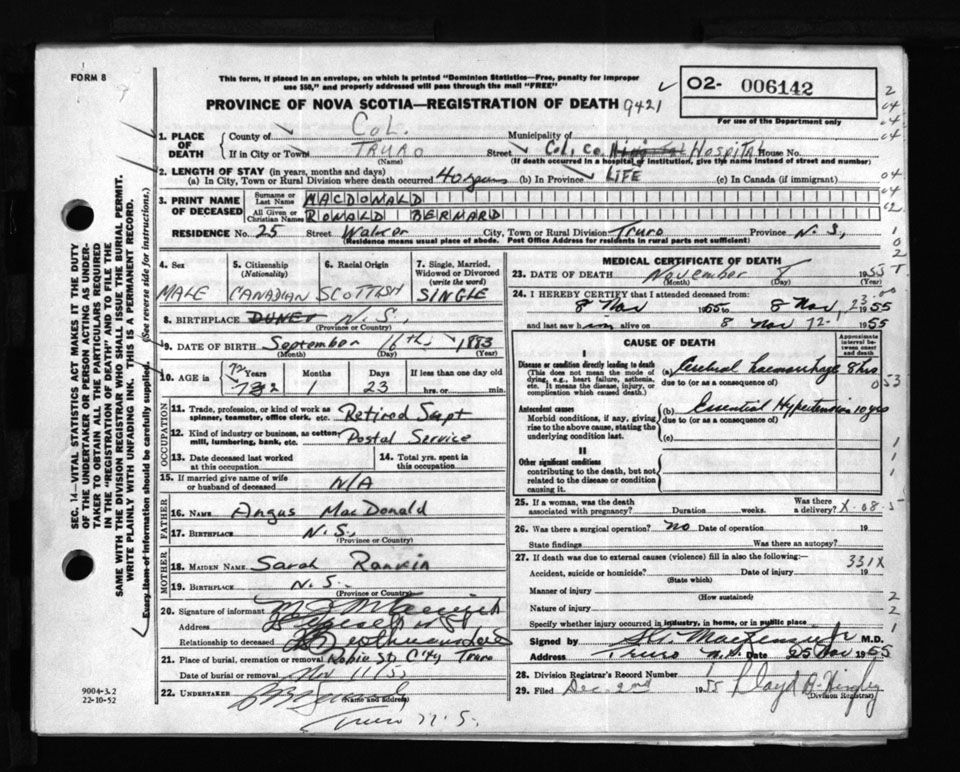 FORM 8
This form, if placed in an envelope, on which is printed "Dominion Statistics—Free, penalty for improper
use $50," and properly addressed will pass through the mail "FREE"
O2- 006142
For use of the Department only
PROVINCE OF NOVA SCOTIA—REGISTRATION OF DEATH 9421
1. PLACE OF DEATH
County of COL. Municipality of
If in City or Town TRURO (Name) Street COL. CO. HOSPITAL House No.
(If death occurred in a hospital or institution, give the name instead of street and number)
2. LENGTH OF STAY (in years, months and days)
(a) In City, Town or Rural Division where death occurred 40 years (b) In Province LIFE (c) In Canada (if immigrant)
3. PRINT NAME OF DECEASED
Surname or Last Name MACDONALD
All Given or Christian Names RONALD BERNARD
RESIDENCE No. 25 Street Walker City, Town or Rural Division Truro Province N.S.,
(Residence means usual place of abode. Post Office Address for residents in rural parts not sufficient)
4. Sex MALE
5. Citizenship (Nationality) CANADIAN
6. Racial Origin SCOTTISH
7. Single, Married, Widowed or Divorced (write the word) SINGLE
8. BIRTHPLACE N.S.,
(Province or Country)
9. DATE OF BIRTH September 16th, 1883
(Month) (Day) (Year)
10. AGE in Years Months Days If less than one day old
72 1 23 hrs. or min.
OCCUPATION
11. Trade, profession, or kind of work as spinner, teamster, office clerk, etc. Retired Supt
12. Kind of industry or business, as cotten mill, lumbering, bank, etc. Postal Service
13. Date deceased last worked at this occupation
14. Total yrs. spent in this occupation
15. If married give name of wife or husband of deceased N/A
FATHER
16. NAME Angus MacDonald
17. BIRTHPLACE N.S.,
(Province or Country)
MOTHER
18. MAIDEN NAME Sarah Rankin
19. BIRTHPLACE N.S.
(Province or Country)
20. Signature of informant
Address
Relationship to deceased
21. Place of burial, cremation or removal Robie St. City Truro
Date of burial or removal Nov 11/55
22. UNDERTAKER
(Name and Address)
Truro N.S.
MEDICAL CERTIFICATE OF DEATH
23. DATE OF DEATH November 8 1955
(Month) (Day)
24. I HEREBY CERTIFY that I attended deceased from:
8 Nov 1955 to 8 Nov, 1955
and last saw him alive on 8 Nov 1955
CAUSE OF DEATH
Approximate interval between onset and death
I
Disease or condition directly leading to death
(This does not mean the mode of dying, e.g., heart failure, asthenia, etc. It means the disease, injury, or complication which caused death.)
(a) Cerebral haemorrhage 8 hrs
due to (or as a consequence of)
Antecedent causes
Morbid conditions, if any, giving rise to the above cause, stating the underlying condition last.
(b) Essential Hypertension 10 yrs
due to (or as a consequence of)
(c)
II
Other significant conditions
contributing to the death, but not related to the disease or condition causing it.
25. If a woman, was the death associated with pregnancy? Duration weeks. Was there a delivery?
26. Was there a surgical operation? no Date of operation 19
State findings Was there an autopsy?
27. If death was due to external causes (violence) fill in also the following:— 331X
Accident, suicide or homicide? Date of injury 19
(State which)
Manner of injury
(How sustained)
Nature of injury
Specify whether injury occurred in industry, in home, or in public place
Signed by MacKenzie Jr M.D.
Address Truro N.S. Date 25 Nov 1955
28. Division Registrar's Record Number
29. Filed Dec. 2nd 1955 Lloyd
(Division Registrar)
SEC. 14—VITAL STATISTICS ACT MAKES IT THE DUTY
OF THE UNDERTAKER OR PERSON ACTING AS UNDER-
TAKER TO OBTAIN ALL THE PARTICULARS REQUIRED
IN THE "REGISTRATION OF DEATH" AND TO FILE THE
SAME WITH THE DIVISION REGISTRAR WHO SHALL ISSUE THE BURIAL PERMIT.
WRITE PLAINLY WITH UNFADING INK. THIS IS A PERMANENT RECORD.
Every item of information should be carefully supplied. (See reverse side for instructions.)
9004-3.2
22-10-52